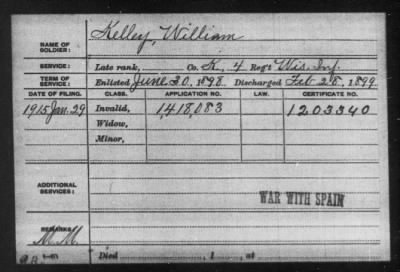 NAME OF SOLDIER: Kelley, William
SERVICE: Late rank, Co. K, 4 Reg't Wis. Inf.
TERM OF SERVICE: Enlisted June 30, 1898 Discharged Feb 28, 1899
DATE OF FILING. CLASS. APPLICATION NO. LAW. CERTIFICATE NO.
1915 Jan. 29 Invalid, 1,418,083 1203340
Widow,
Minor,
ADDITIONAL SERVICES:
WAR WITH SPAIN
REMARKS:
M.M.
Died , 1 , at